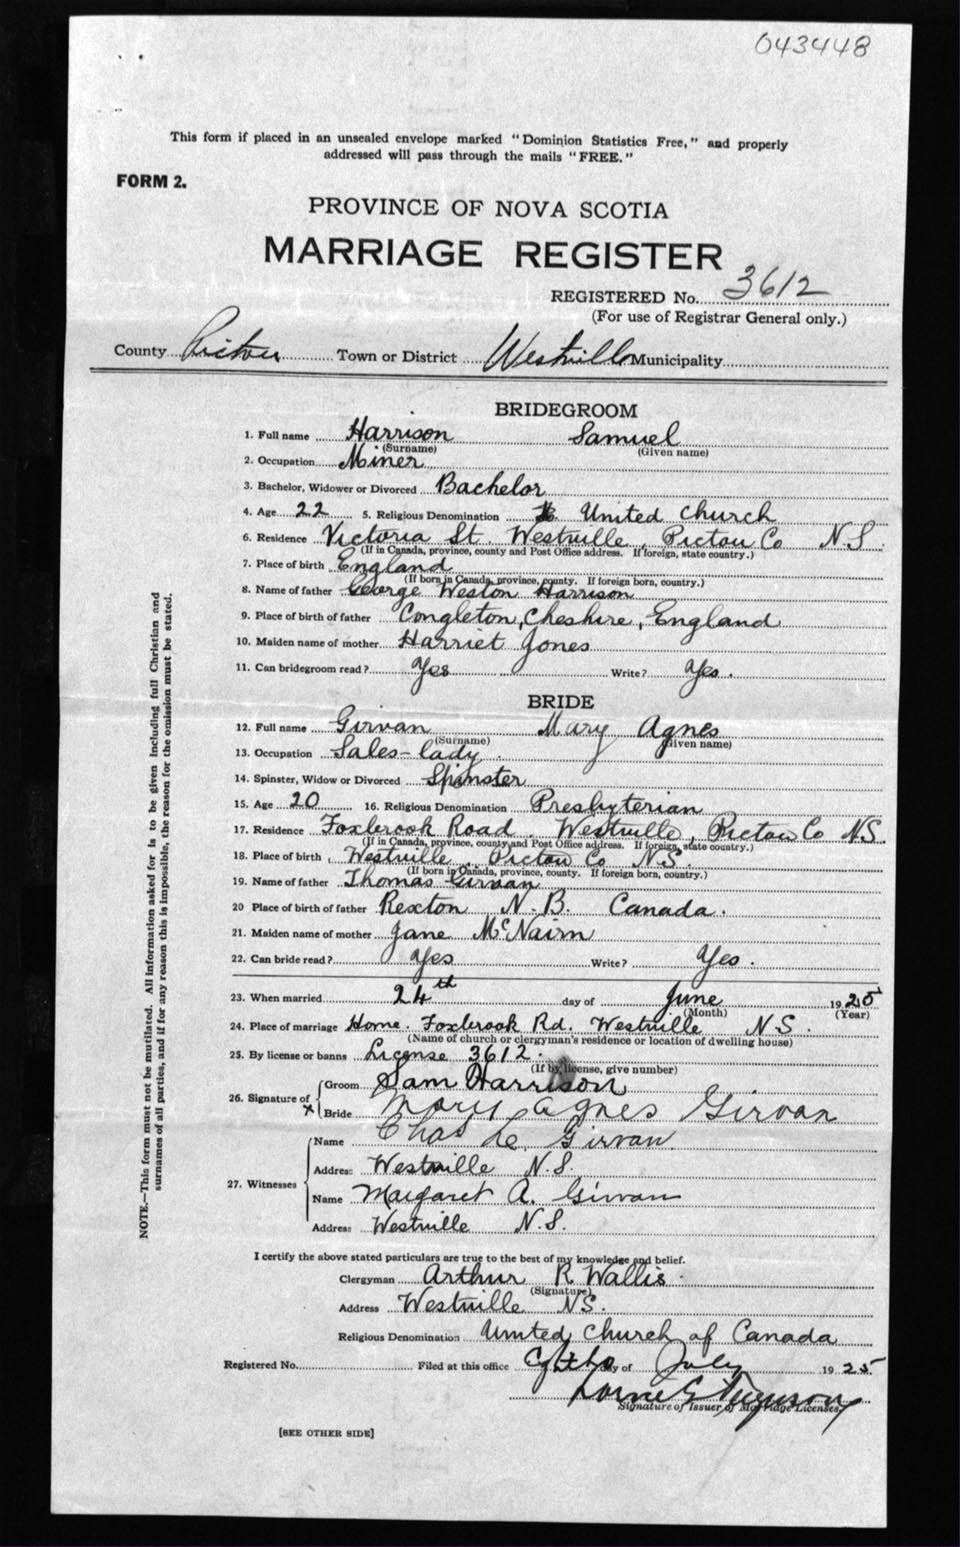 043448
This form if placed in an unsealed envelope marked "Dominion Statistics Free," and properly
addressed will pass through the mails "FREE."
FORM 2.
PROVINCE OF NOVA SCOTIA
MARRIAGE REGISTER
REGISTERED No. 3612
(For use of Registrar General only.)
County Pictou Town or District Westville Municipality
BRIDEGROOM
1. Full name Harrison Samuel
(Surname) (Given name)
2. Occupation Miner
3. Bachelor, Widower or Divorced Bachelor
4. Age 22 5. Religious Denomination United Church
6. Residence Victoria St. Westville, Pictou Co N.S.
(If in Canada, province, county and Post Office address. If foreign, state country.)
7. Place of birth England
(If born in Canada, province, county. If foreign born, country.)
8. Name of father George Weston Harrison
9. Place of birth of father Congleton, Cheshire, England
10. Maiden name of mother Harriet Jones
11. Can bridegroom read? Yes Write? Yes.
BRIDE
12. Full name Girvan Mary Agnes
(Surname) (Given name)
13. Occupation Sales-lady
14. Spinster, Widow or Divorced Spinster
15. Age 20 16. Religious Denomination Presbyterian
17. Residence Foxbrook Road, Westville, Pictou Co N.S.
(If in Canada, province, county and Post Office address. If foreign, state country.)
18. Place of birth Westville, Pictou Co N.S.
(If born in Canada, province, county. If foreign born, country.)
19. Name of father Thomas Girvan
20 Place of birth of father Rexton N.B. Canada.
21. Maiden name of mother Jane McNairn
22. Can bride read? Yes Write? Yes.
23. When married 24th day of June 1925
(Month) (Year)
24. Place of marriage Home. Foxbrook Rd. Westville N.S.
(Name of church or clergyman's residence or location of dwelling house)
25. By license or banns License 3612.
(If by license, give number)
26. Signature of
Groom Sam Harrison
x Bride Mary Agnes Girvan
27. Witnesses
Name Chas Girvan
Address Westville N.S.
Name Margaret A. Girvan
Address Westville N.S.
I certify the above stated particulars are true to the best of my knowledge and belief.
Clergyman Arthur R Wallis.
(Signature)
Address Westville N.S.
Religious Denomination United Church of Canada
Registered No. Filed at this office day of July 1925
Lorne G Ferguson
Signature of Issuer of Marriage Licenses
[SEE OTHER SIDE]
NOTE.—This form must not be mutilated. All information asked for is to be given including full Christian and
surnames of all parties, and if for any reason this is impossible, the reason for the omission must be stated.